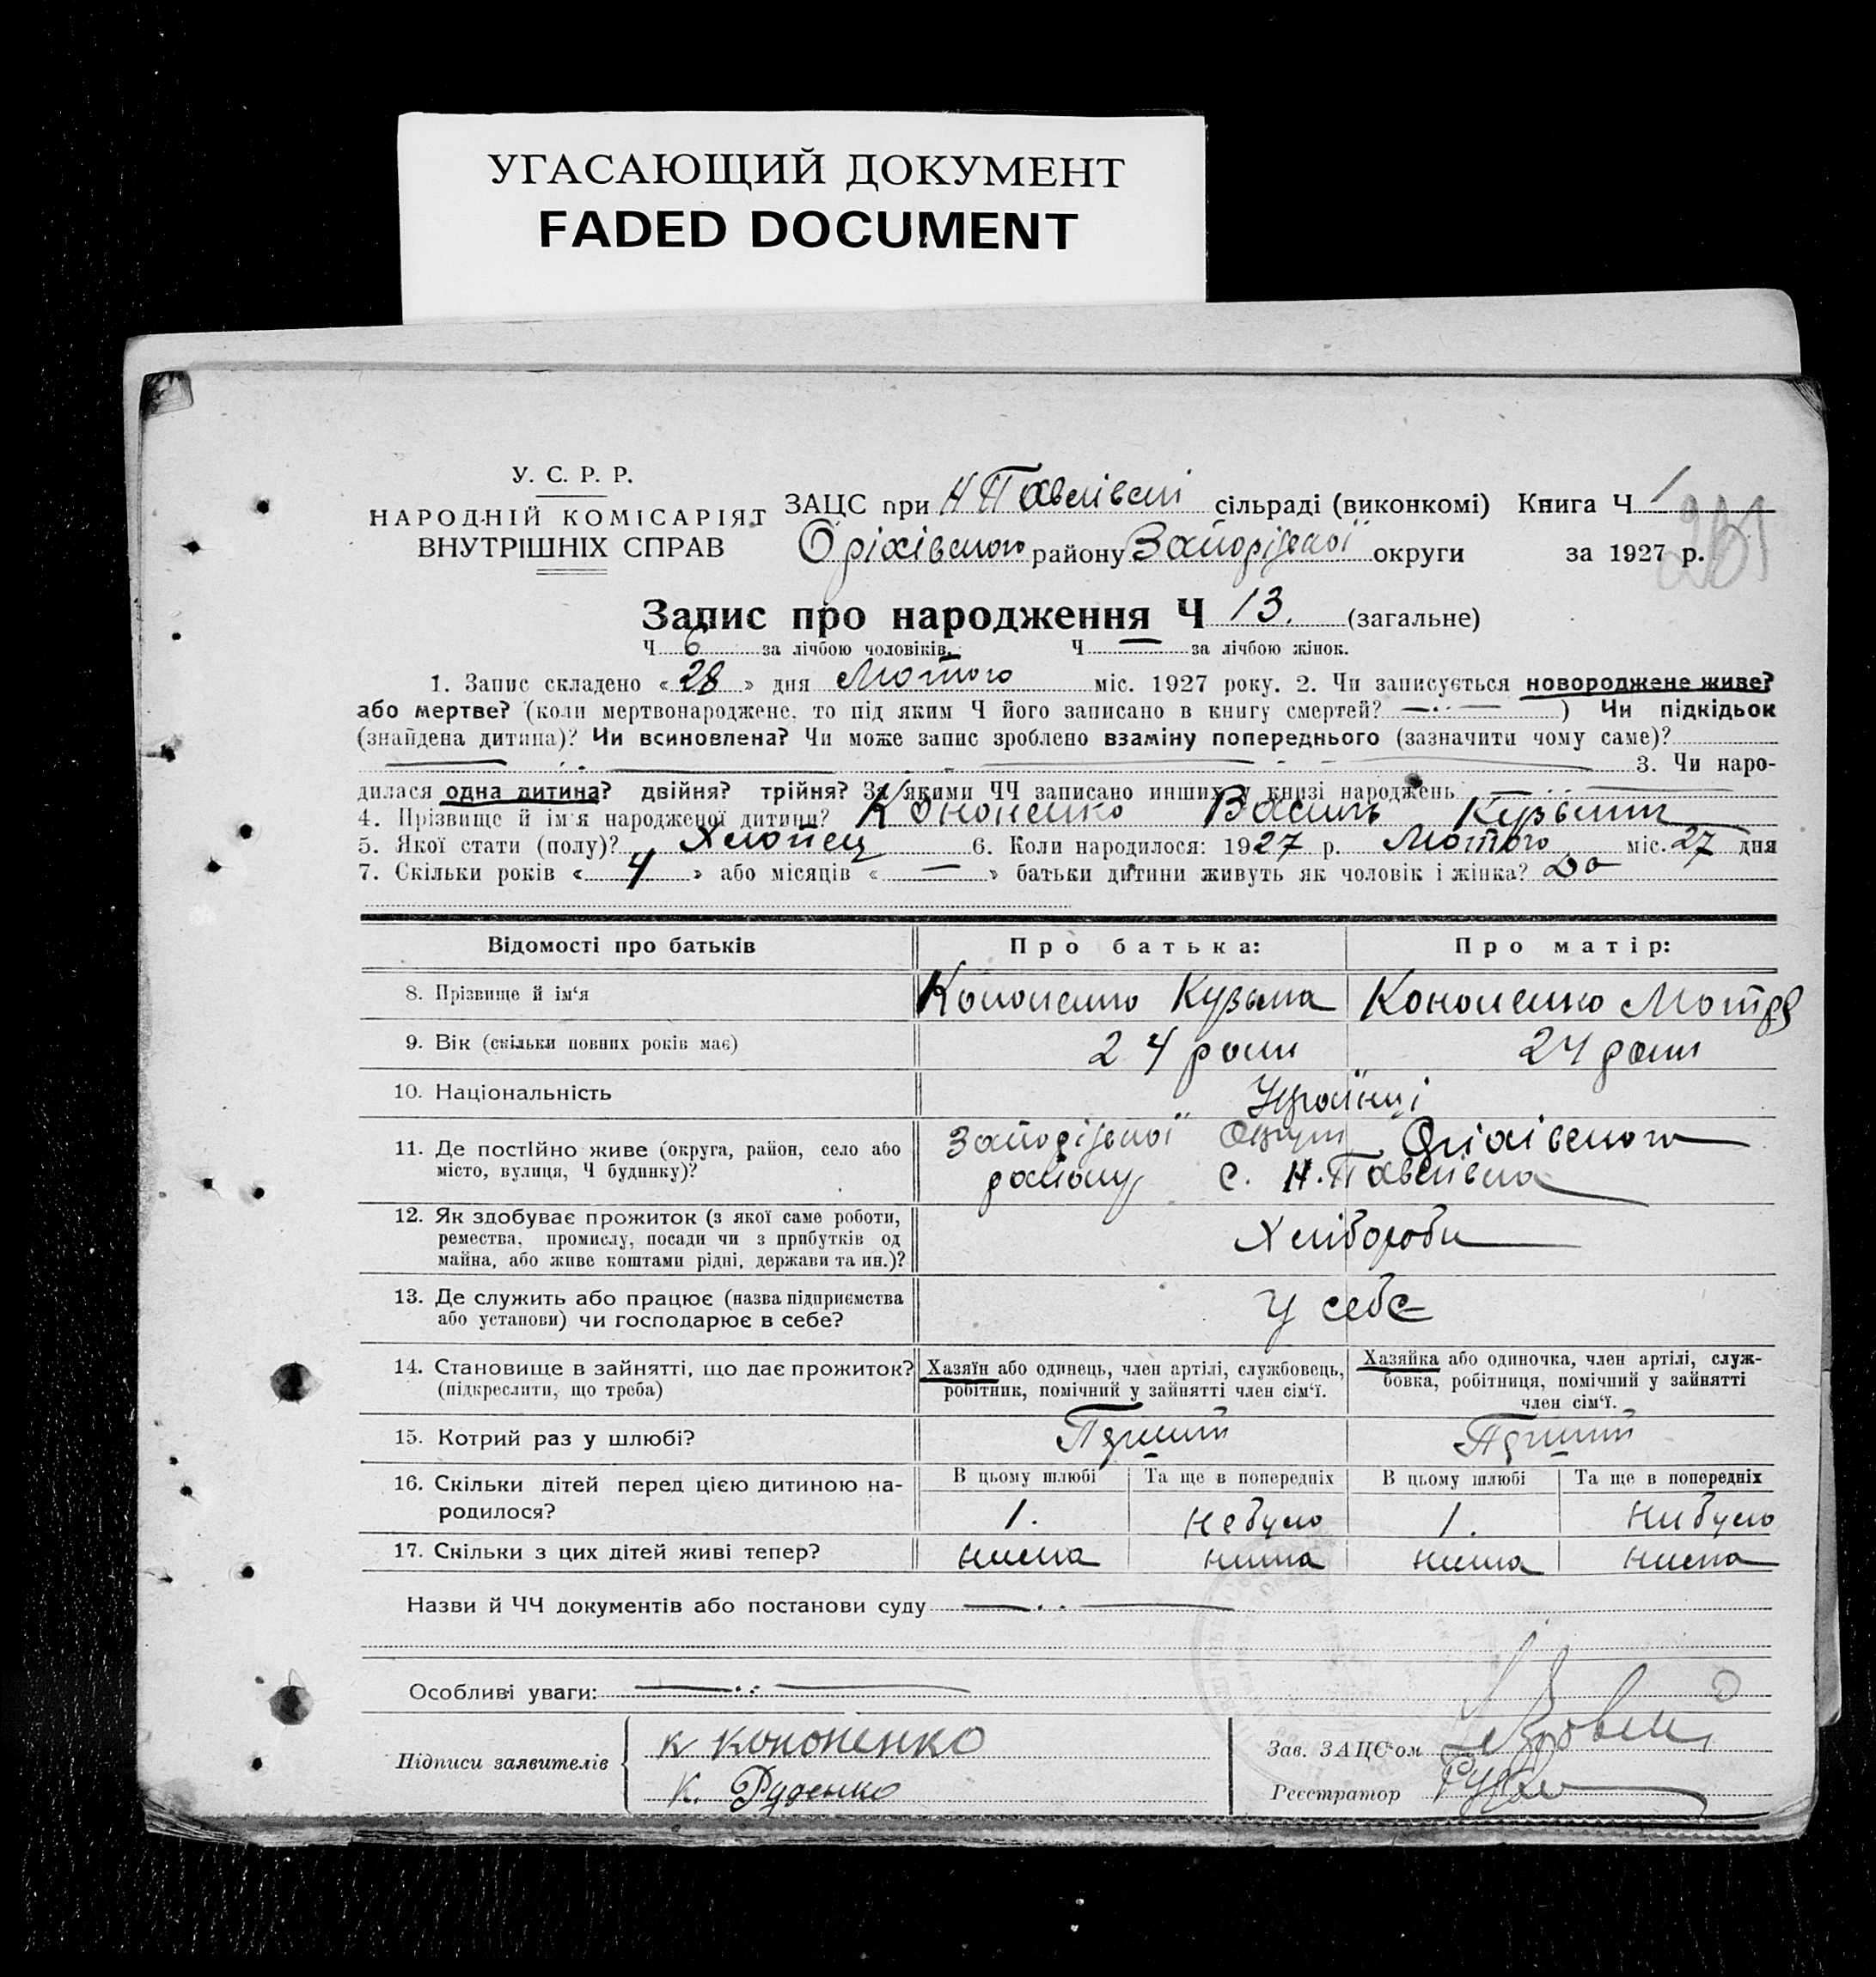 УГАСАЮЩИЙ ДОКУМЕНТ
FADED DOCUMENT
У. С. Р. Р.
НАРОДНІЙ КОМІСАРІЯТ
ВНУТРІШНІХ СПРАВ
ЗАЦС при Н Павлівскі сільраді (виконкомі) Книга Ч 1
Оріхівського району Запоріської округи за 1927 р.
Запис про народження Ч 13. (загальне)
Ч 6 за лічбою чоловіків. Ч — за лічбою жінок.
1. Запис складено «28» дня Лютого міс. 1927 року. 2. Чи записується новороджене живе?
або мертве? (коли мертвонароджене, то під яким Ч його записано в книгу смертей? —··— ) Чи підкідьок
(знайдена дитина)? Чи всиновлена? Чи може запис зроблено взаміну попереднього (зазначити чому саме)?
3. Чи наро-
дилася одна дитина? двійня? трійня? За якими ЧЧ записано инших у книзі народжень
4. Прізвище й ім'я народженої дитини? Кононенко Василь Кузьмич
5. Якої стати (полу)? Хлопец 6. Коли народилося: 1927 р. Лютого міс. 27 дня
7. Скільки років « 4 » або місяців « — » батьки дитини живуть як чоловік і жінка? Да
Відомості про батьків Про батька: Про матір:
8. Прізвище й ім'я Кононенко Кузьма Кононенко Мотря
9. Вік (скільки повних років має) 24 роки 24 роки
10. Національність Українці
11. Де постійно живе (округа, район, село або Запоріської Округи Оріхівського
місто, вулиця, Ч будинку)? району с. Н. Павлівка
12. Як здобуває прожиток (з якої саме роботи,
ремества, промислу, посади чи з прибутків од Хлібороби
майна, або живе коштами рідні, держави та ин.)?
13. Де служить або працює (назва підприємства У себе
або установи) чи господарює в себе?
14. Становище в зайнятті, що дає прожиток? Хазяїн або одинець, член артілі, службовець, Хазяйка або одиночка, член артілі, служ-
(підкреслити, що треба) робітник, помічний у зайнятті член сім'ї. бовка, робітниця, помічний у зайнятті
член сім'ї.
15. Котрий раз у шлюбі? Перший Перший
16. Скільки дітей перед цією дитиною на- В цьому шлюбі Та ще в попередніх В цьому шлюбі Та ще в попередніх
родилося? 1. Небуло 1. Нибуло
17. Скільки з цих дітей живі тепер? нима нима нима нима
Назви й ЧЧ документів або постанови суду —··—
Особливі уваги: —··—
Підписи заявителів К Кононенко Зав. ЗАЦС'ом
К. Руденко Реєстратор